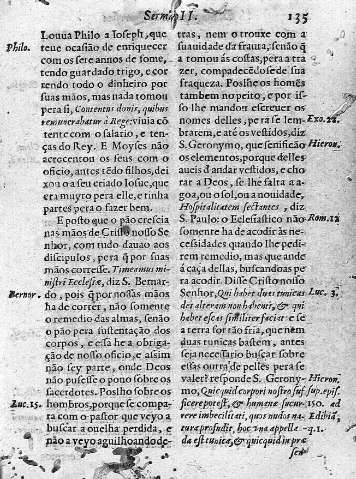 Sermão II.
135
Philo.
Louua Philo a Ioseph, que
teue ocasião de enriquecer
com os sete annos de fome,
tendo guardado trigo, e cor
rendo todo o dinheiro por
suas mãos, mas nada tomou
pera si, Contentus donis, quibus
remunerabatur à Rege: viuia cõ
tente com o salario, e ten-
ças do Rey. E Moyses não
acrecentou os seus com o
officio, antes tẽdo filhos, dei
xou o a seu criado Iosue, que
era muyto pera elle, e tinha
partes pera o fazer bem.
E posto que o pão crescia
nas mãos de Cristo nosso Se
nhor, com tudo dauao aos
discipulos, pera q̃ por suas
mãos corresse. Timeamus mi-
nistri Ecclesiæ, diz S. Bernar-
Bernor.
do, pois q̃ por nossas mãos
ha de correr, não somente
o remedio das almas, senão
o pão pera sustentação dos
corpos, e essa he a obriga-
ção de nosso officio, e assim
não sey parte, onde Deos
não pusesse o pono sobre os
sacerdotes. Poslho sobre os
Luc. 15.
hombros, porque se compa-
ra com o pastor que veyo a
buscar a ouelha perdida, e
não a veyo aguilhoando de-
tras, nem o trouxe com a
suauidade da frauta, senão q̃
a tomou ás costas, pera a tra
zer, compadecẽdose de sua
fraqueza. Poslhe os homẽs
tambem no peito, e por is-
so lhe mandou escreuer os
nomes delles, pera se lem-
Exo. 22.
bratem, e até os vestidos, diz
S. Geronymo, que senificão
Hieron.
os elementos, porque delles
aueis d'andar vestidos, e cho
rar a Deos, se lhe falta a a-
goa, ou o sol, ou a nouidade,
Hospitalitatem sectantes, diz
S. Paulo: o Eclesiastico não
Rom. 12
somente ha de acodir às ne-
cessidades quando lhe pedi-
rem remedio, mas que ande
á caça dellas, buscandoas pe
ra acodir. Disse Cristo nosso
Senhor, Qui habet duas tunicas
Luc. 3.
det alteram non habenti, & qui
habet escas similiter faciat e se
a terra for tão fria, que nem
duas tunicas bastem, antes
seja necessario buscar sobre
essas outras de pelles pera se
valer? responde S. Gerony-
Hieron.
mo, Quicquid corpori nostro suf
sup. epist.
ficere potest, & humanæ sucur
150. ad
rere imbecilitati, quos nudos na-
Edibiã,
tura profudit, hoc vna appella
q. 1.
da est tunica, & quicquid in præ
sen